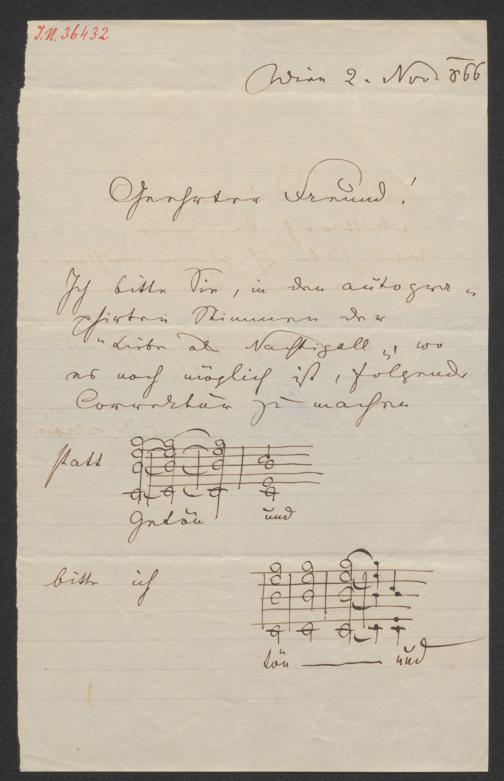 I.N. 36432
Wien 2. Nov. 866
Geehrter Freund!
Ich bitte Sie, in den autogra-
phirten Stimmen der
"Liebe als Nachtigall", wo
es noch möglich ist, folgende
Correktur zu machen
statt
Getön und
bitte ich
tön — und